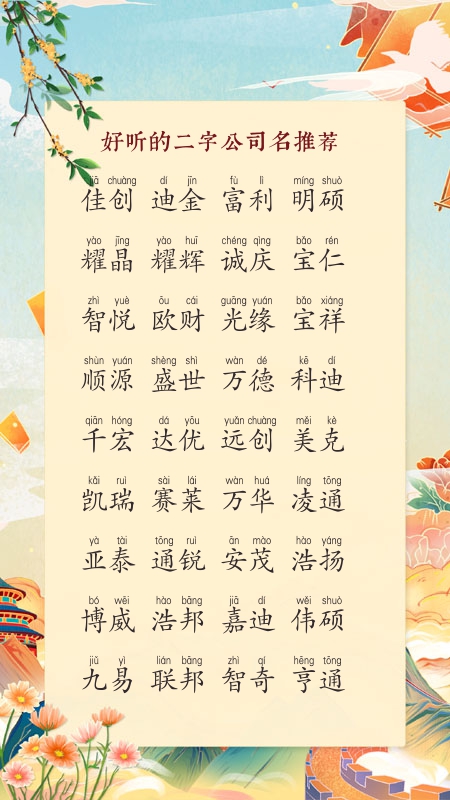 好听的二字公司名推荐
jiā chuàng dí jīn fù lì míng shuò
佳创 迪金 富利 明硕
yào jīng yào huī chéng qìng bǎo rén
耀晶 耀辉 诚庆 宝仁
zhì yuè ōu cái guāng yuán bǎo xiáng
智悦 欧财 光缘 宝祥
shùn yuán shèng shì wàn dé kē dí
顺源 盛世 万德 科迪
qiān hóng dá yōu yuǎn chuàng měi kè
千宏 达优 远创 美克
kǎi ruì sài lái wàn huá líng tōng
凯瑞 赛莱 万华 凌通
yà tài tōng ruì ān mào hào yáng
亚泰 通锐 安茂 浩扬
bó wēi hào bāng jiā dí wěi shuò
博威 浩邦 嘉迪 伟硕
jiǔ yì lián bāng zhì qí hēng tōng
九易 联邦 智奇 亨通